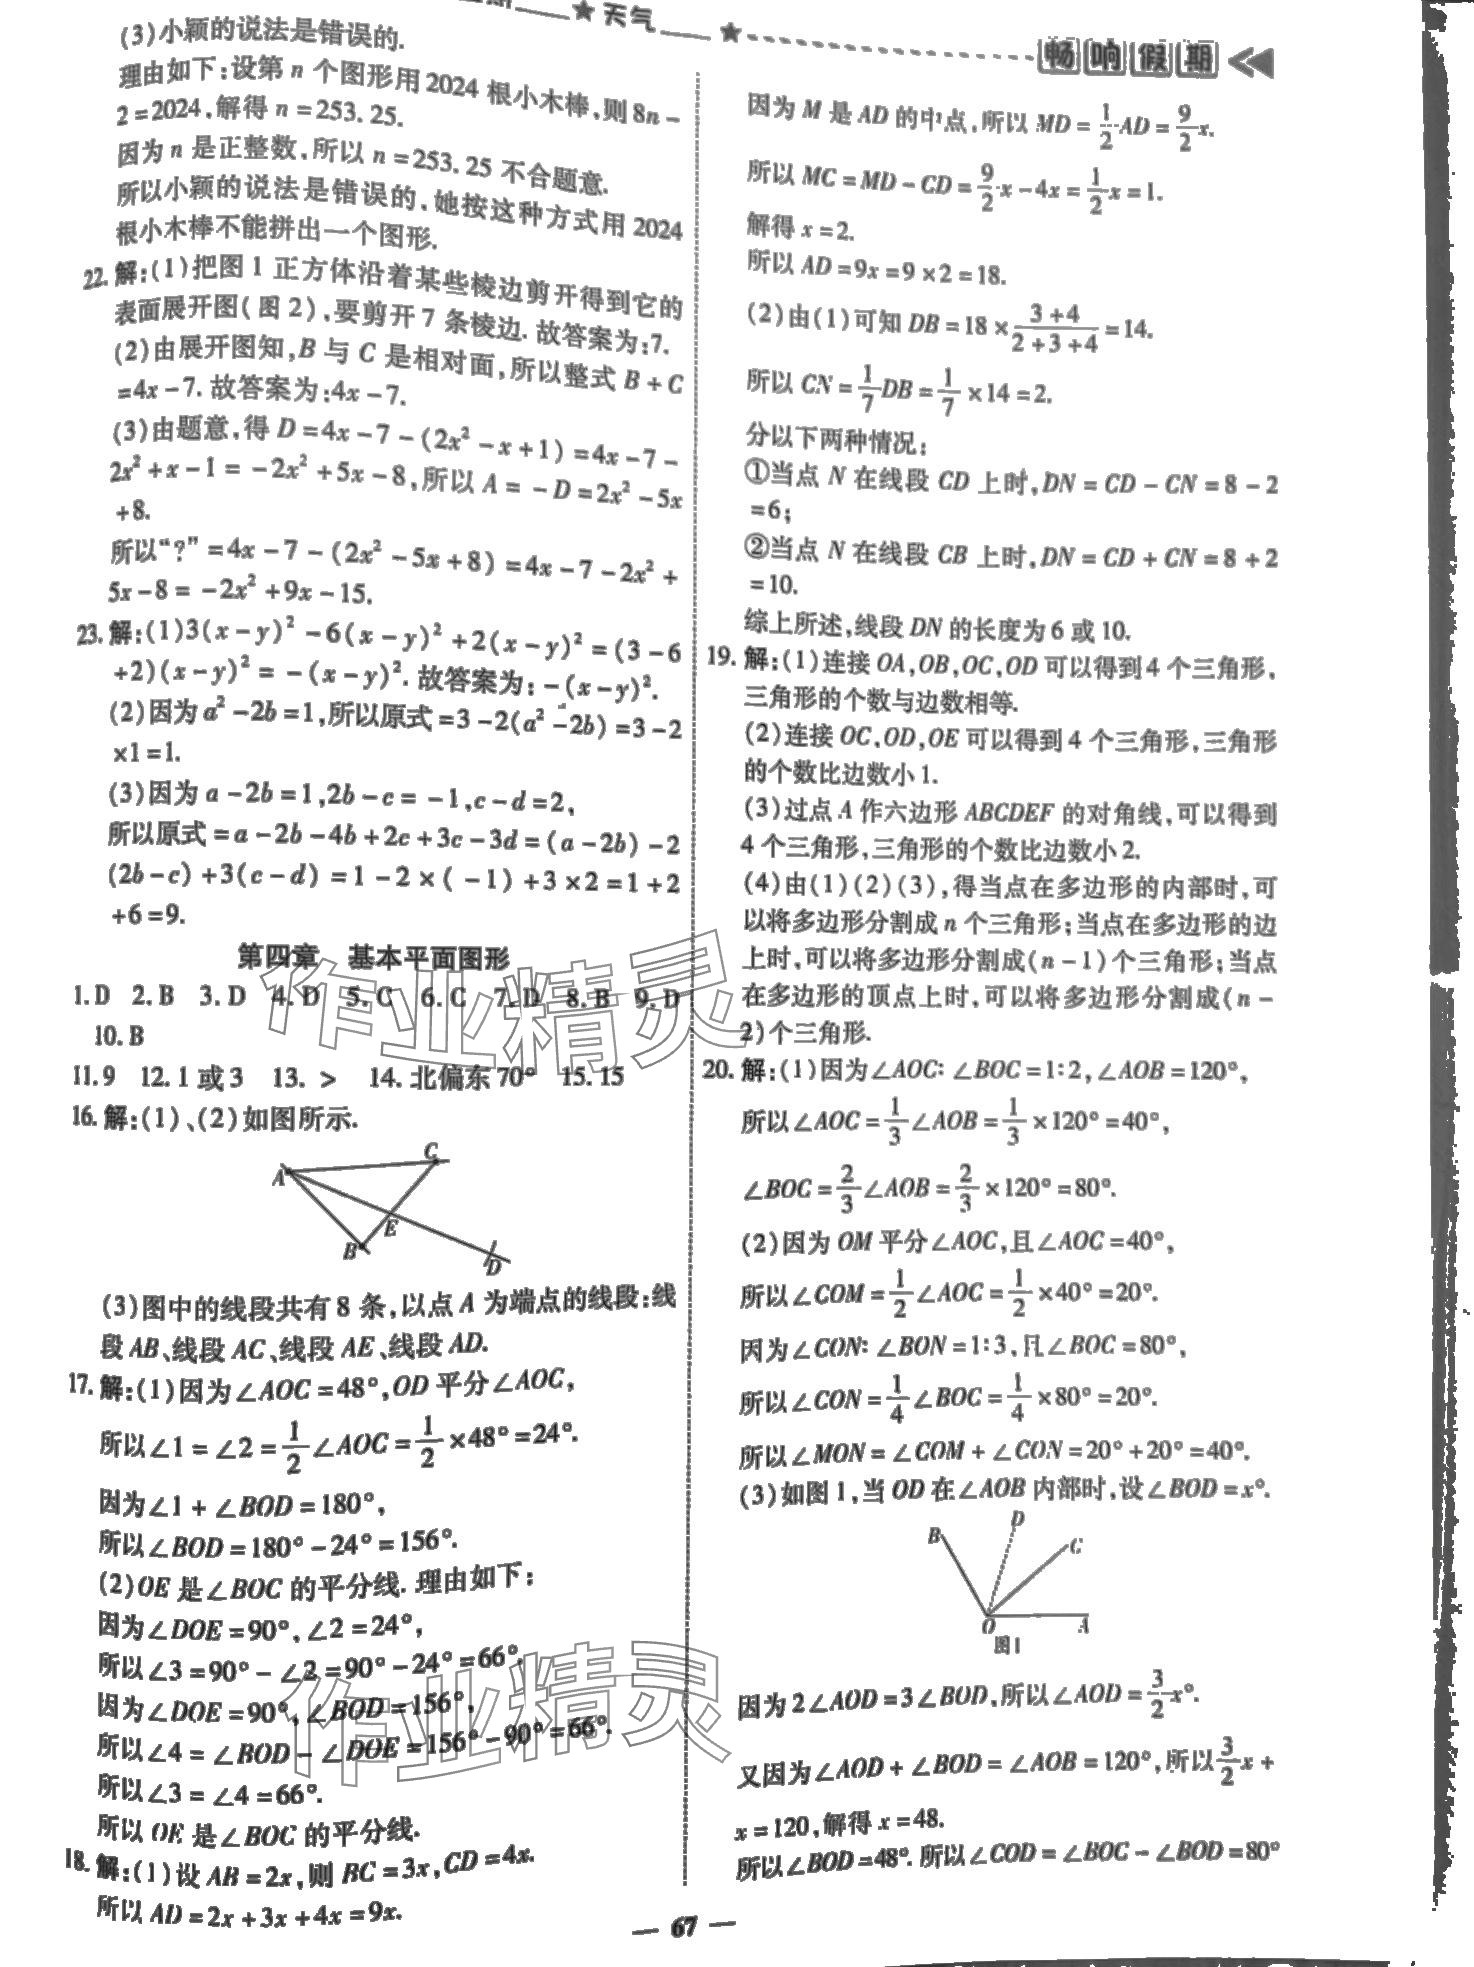 天气
畅响假期
(3)小颖的说法是错误的.
理由如下:设第 n 个图形用 2024 根小木棒,则 8n-
2=2024,解得 n=253.25.
因为 n 是正整数,所以 n=253.25 不合题意.
所以小颖的说法是错误的,她按这种方式用 2024
根小木棒不能拼出一个图形.
22. 解:(1)把图 1 正方体沿着某些棱边剪开得到它的
表面展开图(图 2),要剪开 7 条棱边. 故答案为:7.
(2)由展开图知,B 与 C 是相对面,所以整式 B+C
=4x-7. 故答案为:4x-7.
(3)由题意,得 D=4x-7-(2x²-x+1)=4x-7-
2x²+x-1=-2x²+5x-8,所以 A=-D=2x²-5x
+8.
所以“?”=4x-7-(2x²-5x+8)=4x-7-2x²+
5x-8=-2x²+9x-15.
23. 解:(1)3(x-y)²-6(x-y)²+2(x-y)²=(3-6
+2)(x-y)²=-(x-y)². 故答案为:-(x-y)².
(2)因为 a²-2b=1,所以原式=3-2(a²-2b)=3-2
×1=1.
(3)因为 a-2b=1,2b-c=-1,c-d=2,
所以原式=a-2b-4b+2c+3c-3d=(a-2b)-2
(2b-c)+3(c-d)=1-2×(-1)+3×2=1+2
+6=9.
第四章 基本平面图形
1.D 2.B 3.D 4.D 5.C 6.C 7.D 8.B 9.D
10.B
11.9 12.1 或 3 13. > 14.北偏东 70° 15.15
16. 解:(1)、(2)如图所示.
A C B E D
(3)图中的线段共有 8 条,以点 A 为端点的线段:线
段 AB、线段 AC、线段 AE、线段 AD.
17. 解:(1)因为∠AOC=48°,OD 平分∠AOC,
所以∠1=∠2=1/2∠AOC=1/2×48°=24°.
因为∠1+∠BOD=180°,
所以∠BOD=180°-24°=156°.
(2)OE 是∠BOC 的平分线. 理由如下:
因为∠DOE=90°,∠2=24°,
所以∠3=90°-∠2=90°-24°=66°.
因为∠DOE=90°,∠BOD=156°,
所以∠4=∠BOD-∠DOE=156°-90°=66°.
所以∠3=∠4=66°.
所以 OE 是∠BOC 的平分线.
18. 解:(1)设 AB=2x,则 BC=3x,CD=4x.
所以 AD=2x+3x+4x=9x.
因为 M 是 AD 的中点,所以 MD=1/2AD=9/2x.
所以 MC=MD-CD=9/2x-4x=1/2x=1.
解得 x=2.
所以 AD=9x=9×2=18.
(2)由(1)可知 DB=18×(3+4)/(2+3+4)=14.
所以 CN=1/7DB=1/7×14=2.
分以下两种情况:
①当点 N 在线段 CD 上时,DN=CD-CN=8-2
=6;
②当点 N 在线段 CB 上时,DN=CD+CN=8+2
=10.
综上所述,线段 DN 的长度为 6 或 10.
19. 解:(1)连接 OA,OB,OC,OD 可以得到 4 个三角形,
三角形的个数与边数相等.
(2)连接 OC,OD,OE 可以得到 4 个三角形,三角形
的个数比边数小 1.
(3)过点 A 作六边形 ABCDEF 的对角线,可以得到
4 个三角形,三角形的个数比边数小 2.
(4)由(1)(2)(3),得当点在多边形的内部时,可
以将多边形分割成 n 个三角形;当点在多边形的边
上时,可以将多边形分割成(n-1)个三角形;当点
在多边形的顶点上时,可以将多边形分割成(n-
2)个三角形.
20. 解:(1)因为∠AOC:∠BOC=1:2,∠AOB=120°,
所以∠AOC=1/3∠AOB=1/3×120°=40°,
∠BOC=2/3∠AOB=2/3×120°=80°.
(2)因为 OM 平分∠AOC,且∠AOC=40°,
所以∠COM=1/2∠AOC=1/2×40°=20°.
因为∠CON:∠BON=1:3,且∠BOC=80°,
所以∠CON=1/4∠BOC=1/4×80°=20°.
所以∠MON=∠COM+∠CON=20°+20°=40°.
(3)如图 1,当 OD 在∠AOB 内部时,设∠BOD=x°.
B D C O A
图1
因为 2∠AOD=3∠BOD,所以∠AOD=3/2x°.
又因为∠AOD+∠BOD=∠AOB=120°,所以3/2x+
x=120,解得 x=48.
所以∠BOD=48°. 所以∠COD=∠BOC-∠BOD=80°
— 67 —
作业精灵
作业精灵